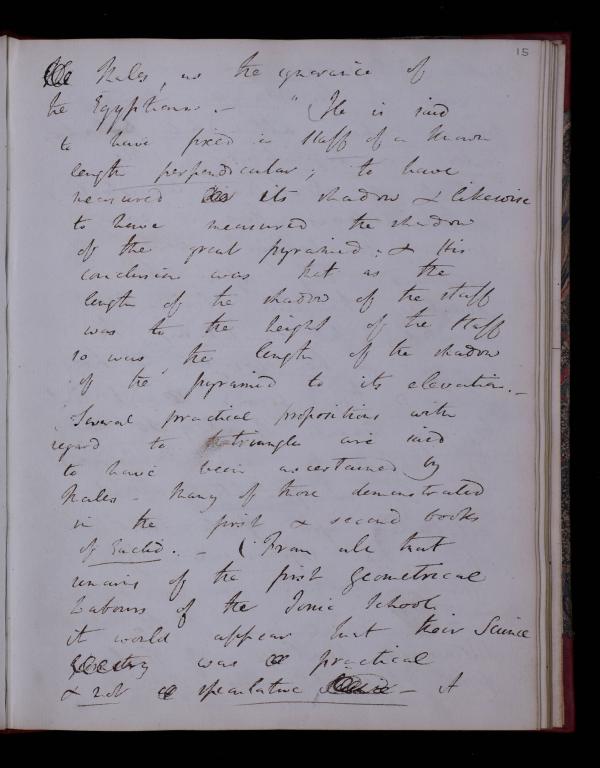 15
Thales, as the ignorance of
the Egyptians. - " (He is said
to have fixed a staff of a known
length perpendicular; to have
measured its shadow & likewise
to have measured the shadow
of the great pyramid: & His
conclusion was that as the
length of the shadow of the staff
was to the height of the staff
so was the length of the shadow
of the pyramid to its elevation. -
Several practical propositions with
regard to triangles are said
to have been ascertained by
Thales - Many of those demonstrated
in the first & second books
of Euclid. - (From all that
remains of the first Geometrical
Labours of the Ionic School
it would appear that their Science
was practical
& not speculative - A